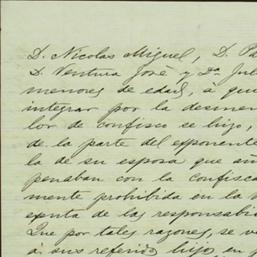 D. Nicolas Miguel, D. Pa
D. Ventura José y Da. Jul
menores de edad, á qu
integrar por la desmem
lor de confisco se hizo,
de la parte del exponente
la de su esposa que aun
penaban con la confisca
mente prohibida en la
exenta de las responsabi
Que por tales razones, se v
á sus referidos hijos en